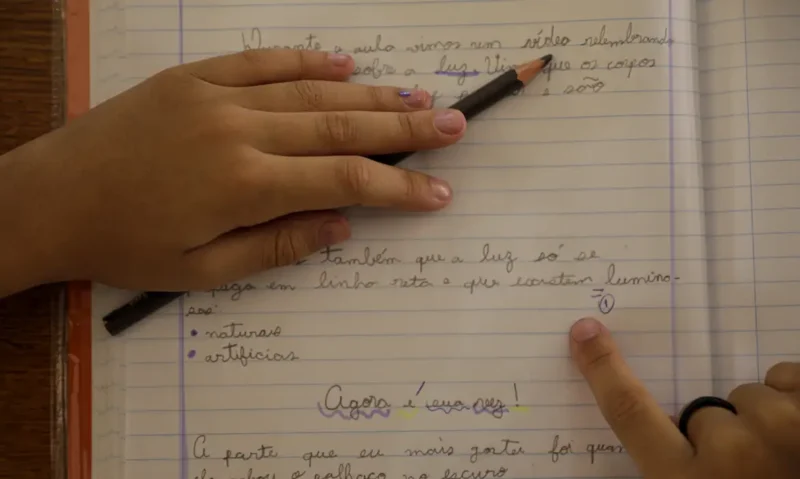 Durante a aula vimos um vídeo relembrando
sobre a luz. que os corpos
e são
também que a luz só se
em linha reta e que existem lumino-
sos:
• naturais
• artificiais
①
Agora é sua vez!
A parte que eu mais gostei foi
o palhaço no escuro